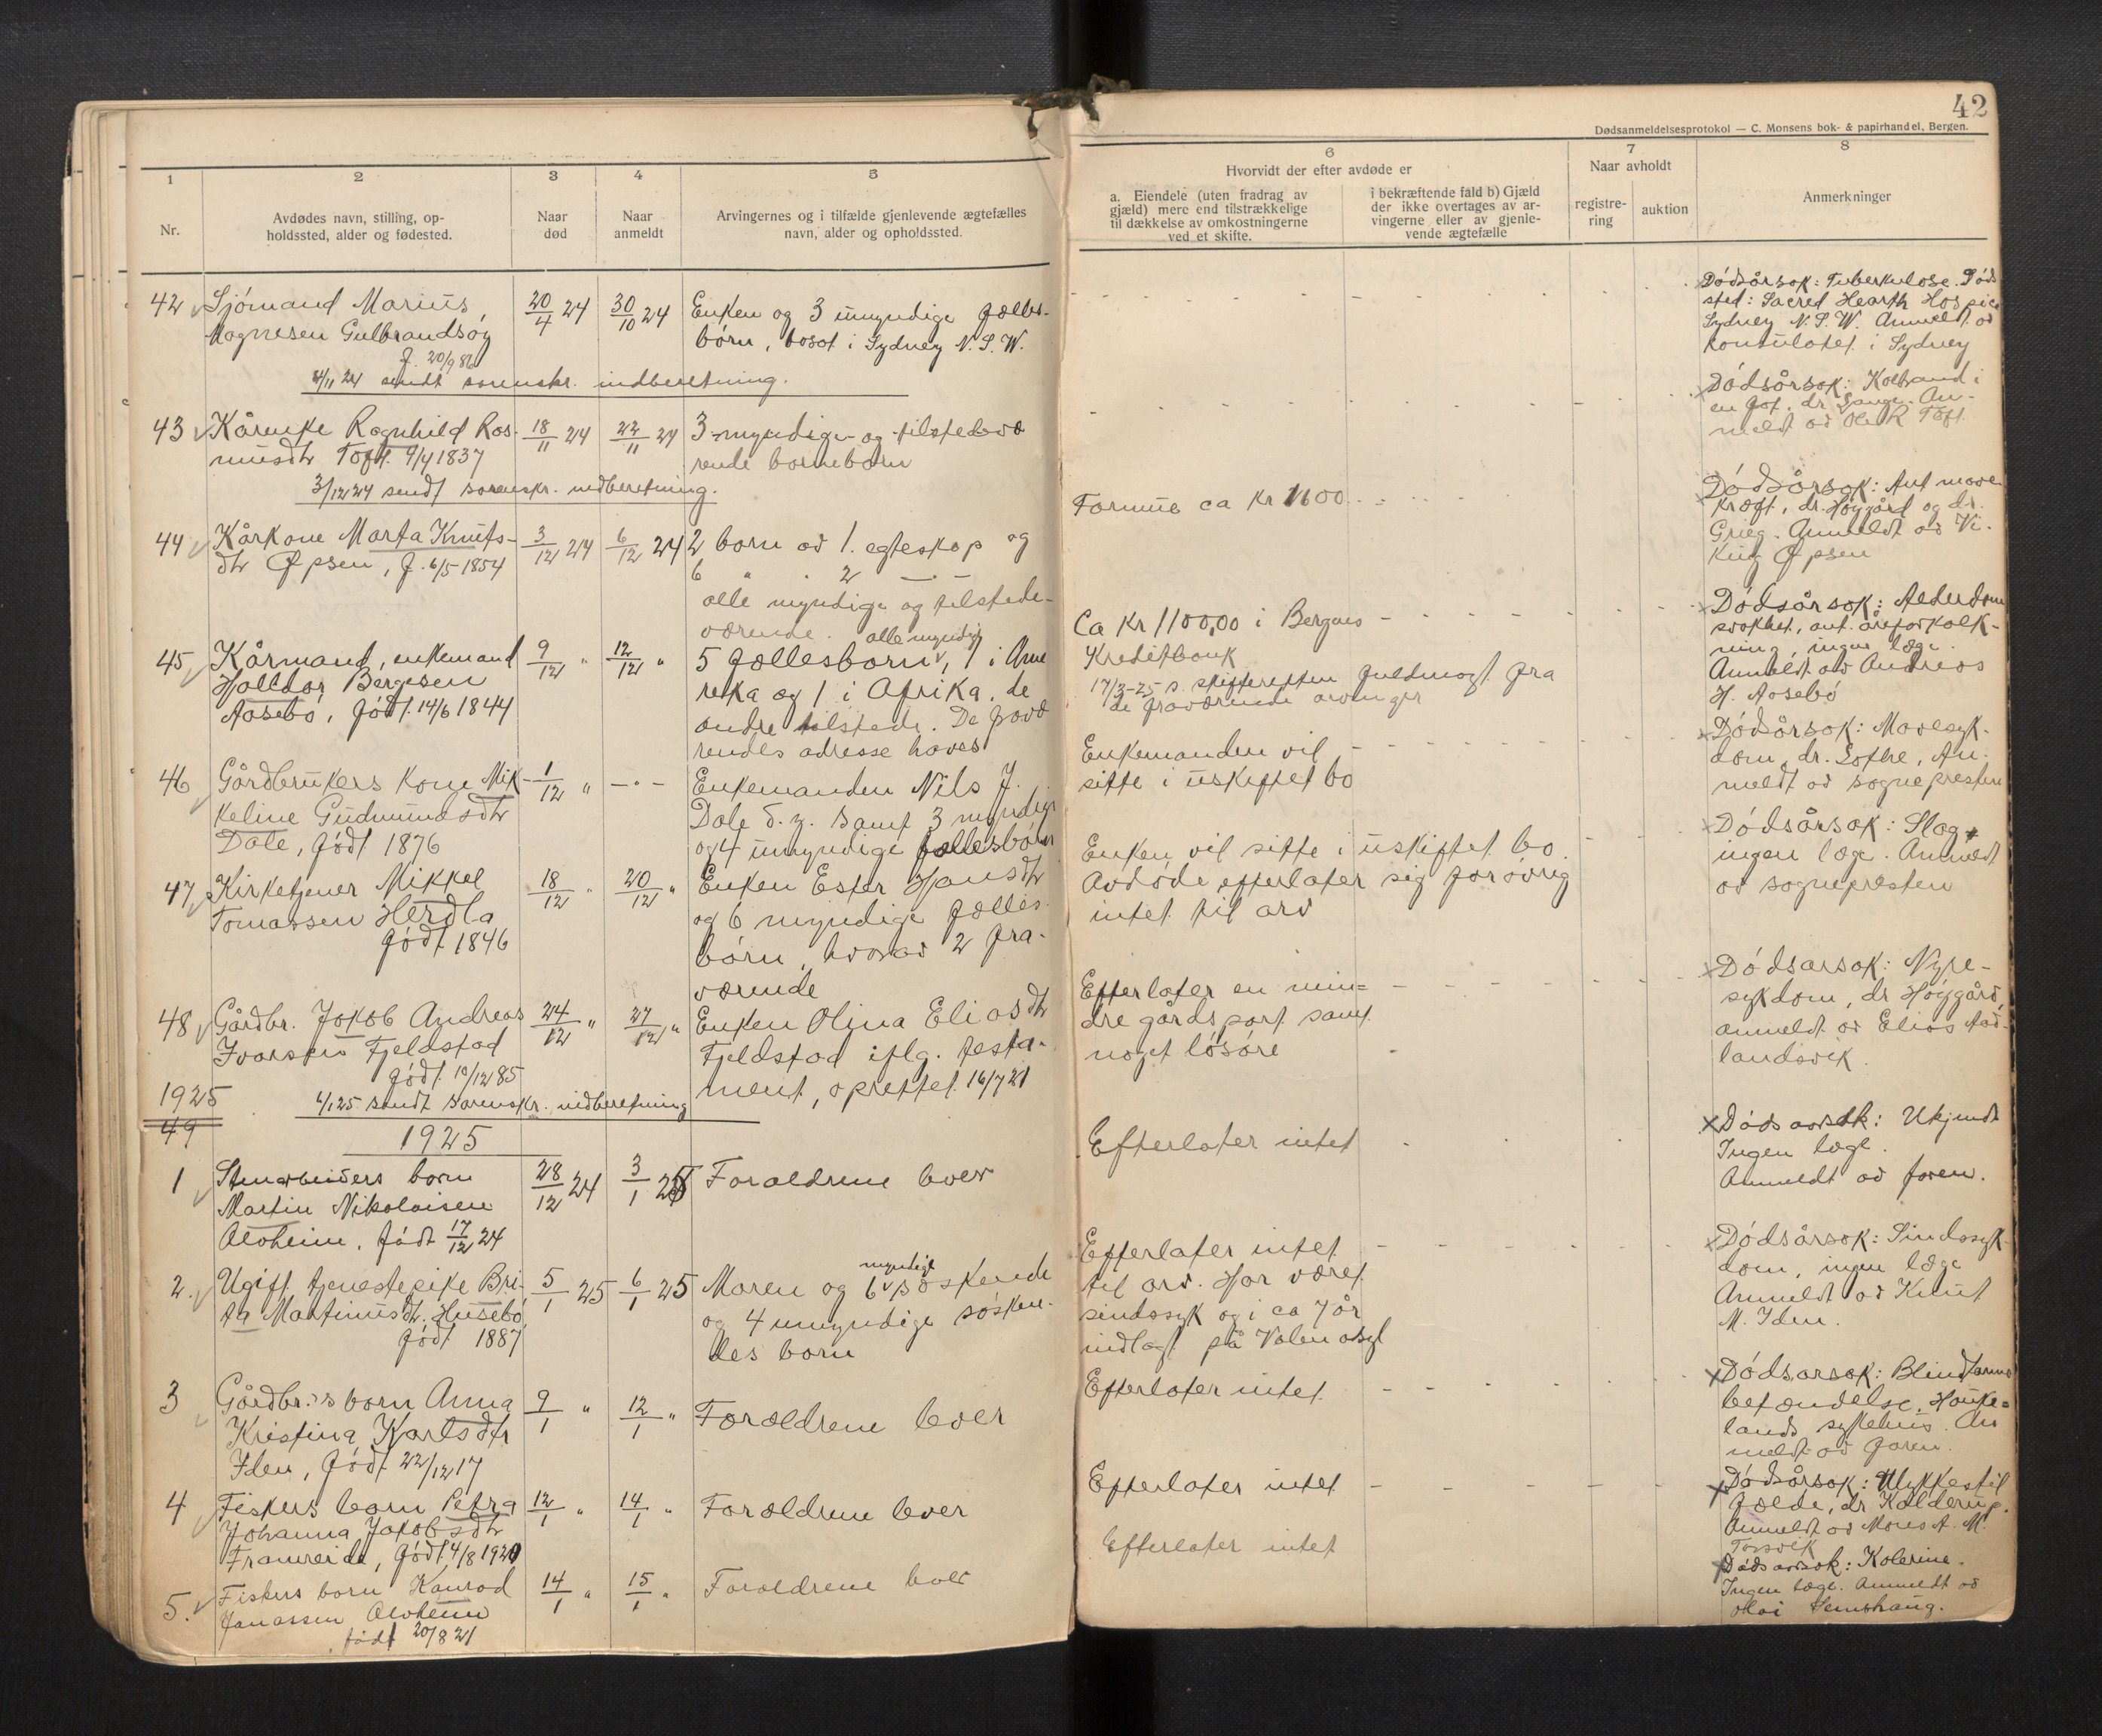 42
Dødsanmeldelsesprotokol — C. Monsens bok- & papirhandel, Bergen.
1
2
3
4
5
6
7
8
Nr.
Avdødes navn, stilling, op-
holdssted, alder og fødested.
Naar
død
Naar
anmeldt
Arvingernes og i tilfælde gjenlevende ægtefælles
navn, alder og opholdssted.
Hvorvidt der efter avdøde er
a. Eiendele (uten fradrag av
gjæld) mere end tilstrækkelige
til dækkelse av omkostningerne
ved et skifte.
i bekræftende fald b) Gjæld
der ikke overtages av ar-
vingerne eller av gjenle-
vende ægtefælle
Naar avholdt
registre-
ring
auktion
Anmerkninger
42
Sjömand Marius
Magnesen Gulbrandsøy
f. 20/9 86
20/4 24
30/10 24
Enken og 3 umyndige fælles-
børn, bosat i Sydney N.S.W.
Dödsårsak: Tuberkulose. Död-
sted: Sacred Hearth Hospice
Sydney N.S.W. Anmeldt av
konsulatet i Sydney
sendt sorenskr. indberetning.
43
Kårenke Ragnhild Ras-
musdtr Toft. 9/4 1837
18/11 24
22/11 24
3 myndige og tilstedevæ
rende barnebørn
Dödsårsak: Kolbrand i
en fot. dr. An-
meldt av Ole R Toft.
3/12 24 sendt sorenskr. indberetning.
44
Kårkone Marta Knuts-
dtr Øpsen, f. 6/5-1854
3/12 24
6/12 24
2 barn av 1. egteskap og
6 " . 2 — . —
alle myndige og tilstede-
værende.
Formue ca kr 1600
Dödsårsak: Ant mave
kræft, dr. Höygård og dr.
Grieg. Anmeldt av Vi-
king Øpsen
45
Kårmand, enkemand
Halldor Børgesen
Aasebö, födt. 14/6 1844
9/12 "
12/12 "
alle myndig
5 fællesbørn, 1 i Ame
rika og 1 i Afrika, de
andre tilstede. De fravæ
rendes adresse haves
Ca kr 1100,00 i Bergens
Kreditbank
17/3-25 s. skifteretten fuldmagt fra
de fraværende arvinger
Dödsårsok: Alderdoms
svakhet, ant. åreforkalk-
ning, ingen læge.
Anmeldt av Andreas
H. Aasebö
46
Gårdbrukers kone Mik-
keline Gudmundsdtr
Dale, födt 1876
1/12 "
— " —
Enkemanden Nils J.
Dale s. z. samt 3 myndige
og 4 umyndige fællesbørn
Enkemanden vil
sitte i uskiftet bo
Dödsårsak: Mavesyk-
dom, dr. Lothe, An-
meldt av sognepresten
47
Kirketjener Mikkel
Tomassen Herdla
födt 1846
18/12 "
20/12 "
Enken Ester Hansdtr
og 6 myndige fælles-
börn, hvorav 2 fra-
værende
Enken vil sitte i uskiftet bo.
Avdöde efterlater sig forövrig
intet til arv
Dödsårsak: Slag,
ingen læge. Anmeldt
av sognepresten
48
Gårdbr. Jakob Andreas
Ivarsen Fjeldstad
födt 10/12 85
24/12 "
27/12 "
Enken Olina Eliasdtr
Fjeldstad iflg. testa-
ment, oprettet 16/7 21
Efterlater en min-
dre gårdspart samt
noget lösöre
Dödsarsak: Nyre-
sykdom, dr Höygård,
anmeldt av Elias Aad-
landsvik.
1925
49
1/1 25 sendt sorenskr. indberetning
1925
1
Stenarbeiders barn
Martin Nikolaisen
Alvheim, födt 17/12 24
28/12 24
3/1 25
Forældrene lever
Efterlater intet
Döds aarsak: Ukjendt
Ingen læge.
Anmeldt av faren.
2.
Ugift tjenestepike Bri-
ta Martinusdtr. Husebö,
födt 1887
5/1 25
6/1 25
myndige
Moren og 6 söskende
og 4 umyndige sösken-
des barn
Efterlater intet
til arv. Har været
sindssyk og i ca 7 år
indlagt på Valen asyl
Dödsårsak: Sindssyk-
dom, ingen læge
Anmeldt av Knut
M. Iden.
3
Gårdbr.'s barn Anna
Kristina Karlsdtr
Iden, födt 22/12 17
9/1 "
12/1 "
Forældrene lever
Efterlater intet.
Dödsarsak: Blindtarms
betændelse, Hauke-
lands sykehus. An
meldt av faren.
4
Fiskers barn Petra
Johanna Jakobsdtr
Framreide, födt 4/8 1920
12/1 "
14/1 "
Forældrene lever
Efterlater intet
Dödsårsak: Ulykkestil
fælde, dr Kalderup.
Anmeldt av Mons A. M.
Torsvik
5.
Fiskers barn Konrad
Jonassen Alvheim
födt 20/8 21
14/1 "
15/1 "
Forældrene lever
Efterlater intet
Döds aarsak: Kolerine.
Ingen læge. Anmeldt av
Olai Semshaug.